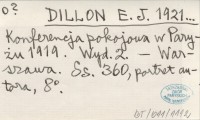 o?
DILLON E. J. 1921...
Konferencja pokojowa w Pary-
żu 1919. Wyd. 2. — War-
szawa. Ss. 360, portret au-
tora, 8°.